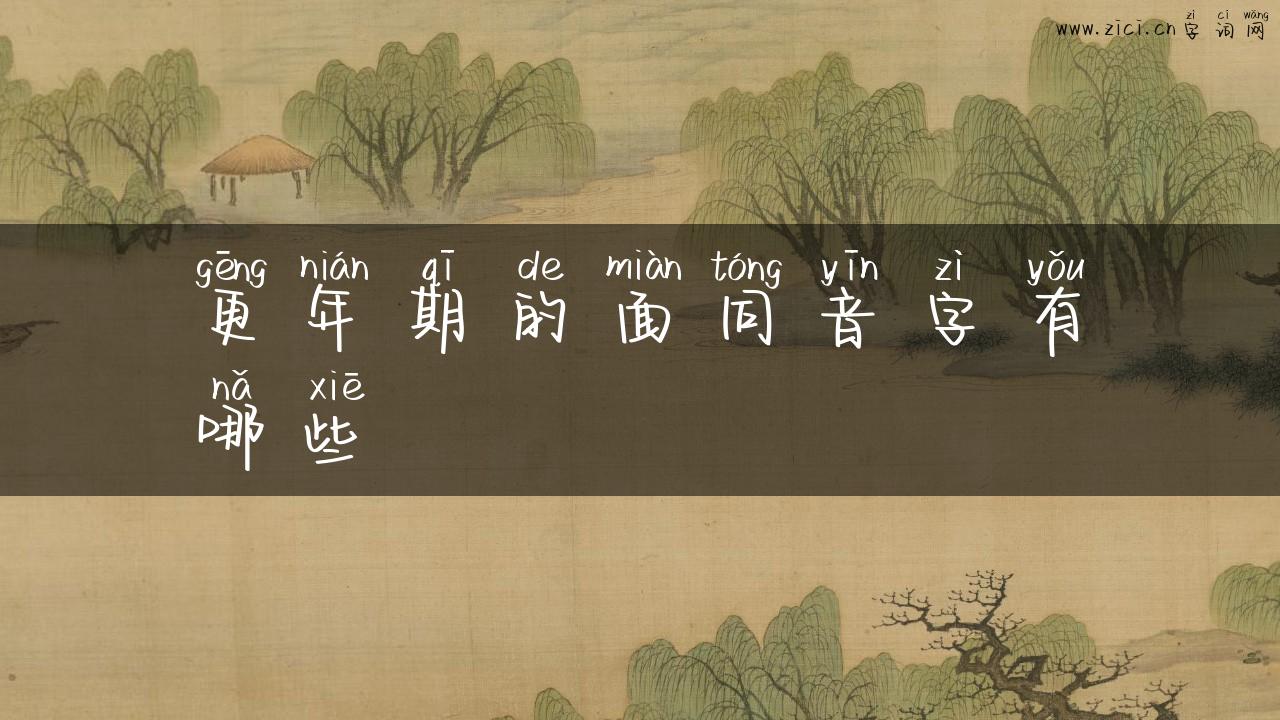 zì cí wǎng
www.zici.cn 字 词 网
gēng nián qī de miàn tóng yīn zì yǒu
更 年 期 的 面 同 音 字 有
nǎ xiē
哪 些